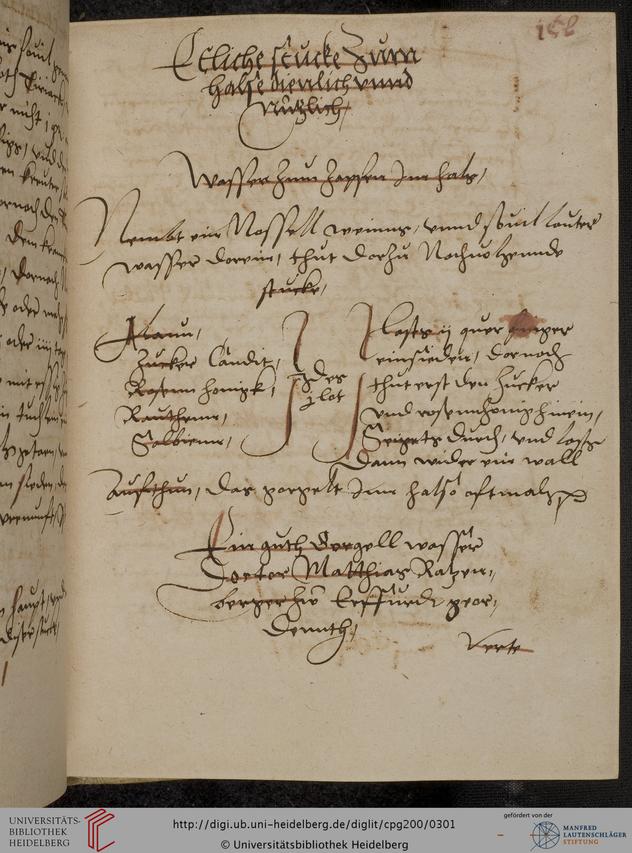 158
Etliche stucke Zum
halse dienlich unnd
Nützlich,
Wasser zum Zapfen Im hals,
Nembt ein Nossell weins, unnd souil louter
wasser dorein, thut dorzu Nochuolgennde
stucke,
Alaun,
Zucker Candit,
Rosenn honigk,
Rauthenn,
Salbienn,
Ides
2 lot
Losts ij quer finger
einsieden, dornoch
thut erst den Zucker
und rosennhonig hinein,
Seigets durch, und losts
Dann wider ein wall
Aufthun, das gorgelt Im halse oftmals
Ein guth Gorgell wasser
Doctor Matthias Ratzen,
berger zw Erffurdt geor,
dennth,
Verte
UNIVERSITÄTS-
BIBLIOTHEK
HEIDELBERG
http://digi.ub.uni-heidelberg.de/diglit/cpg200/0301
© Universitätsbibliothek Heidelberg
gefördert von der
MANFRED
LAUTENSCHLÄGER
STIFTUNG